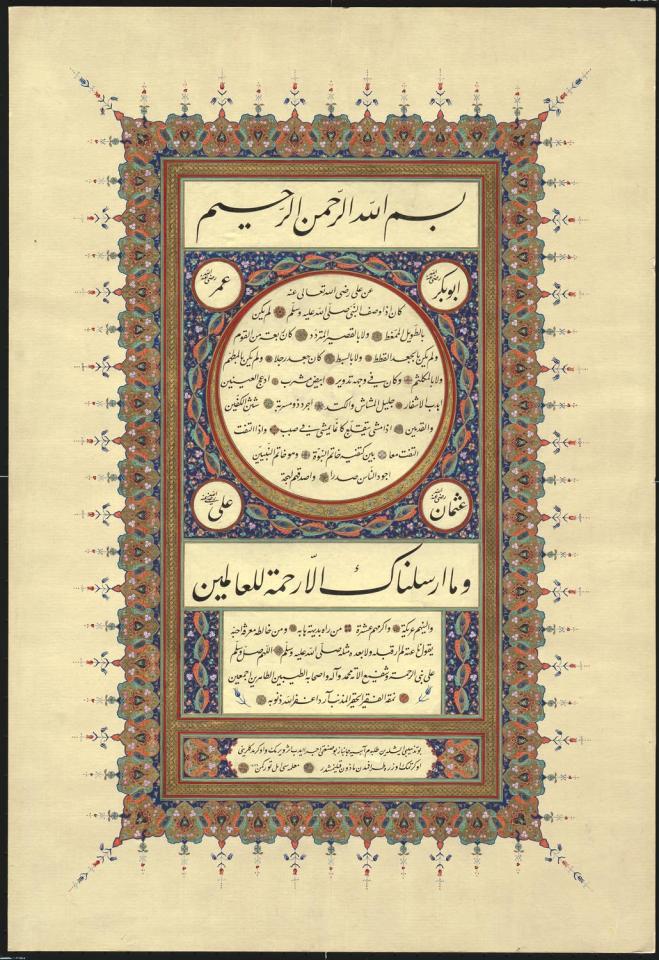 بسم الله الرحمن الرحيم
ابوبكر رضى الله عنه
عمر رضى الله عنه
عن على رضى الله تعالى عنه
كان اذا وصف النبى صلى الله عليه وسلم لم يكن
بالطويل الممغط ولا بالقصير المتردد كان ربعة من القوم
ولم يكن بالجعد القطط ولا بالسبط كان جعدا رجلا ولم يكن بالمطهم
ولا بالمكلثم وكان فى وجهه تدوير ابيض مشرب ادعج العينين
اهدب الاشفار جليل المشاش والكتد اجرد ذو مسربة شثن الكفين
والقدمين اذا مشى تقلع كانما يمشى فى صبب واذا التفت
التفت معا بين كتفيه خاتم النبوة وهو خاتم النبيين
اجود الناس صدرا واصدقهم لهجة
عثمان رضى الله عنه
على رضى الله عنه
وما ارسلناك الا رحمة للعالمين
والينهم عريكة واكرمهم عشرة من راه بديهة هابه ومن خالطه معرفة احبه
يقول ناعته لم ار قبله ولا بعده مثله صلى الله عليه وسلم اللهم صل وسلم
على نبى الرحمة وشفيع الامة محمد وآله واصحابه الطيبين الطاهرين اجمعين
نمقه الفقير الحقير المذنب آردا غفر الله ذنوبه